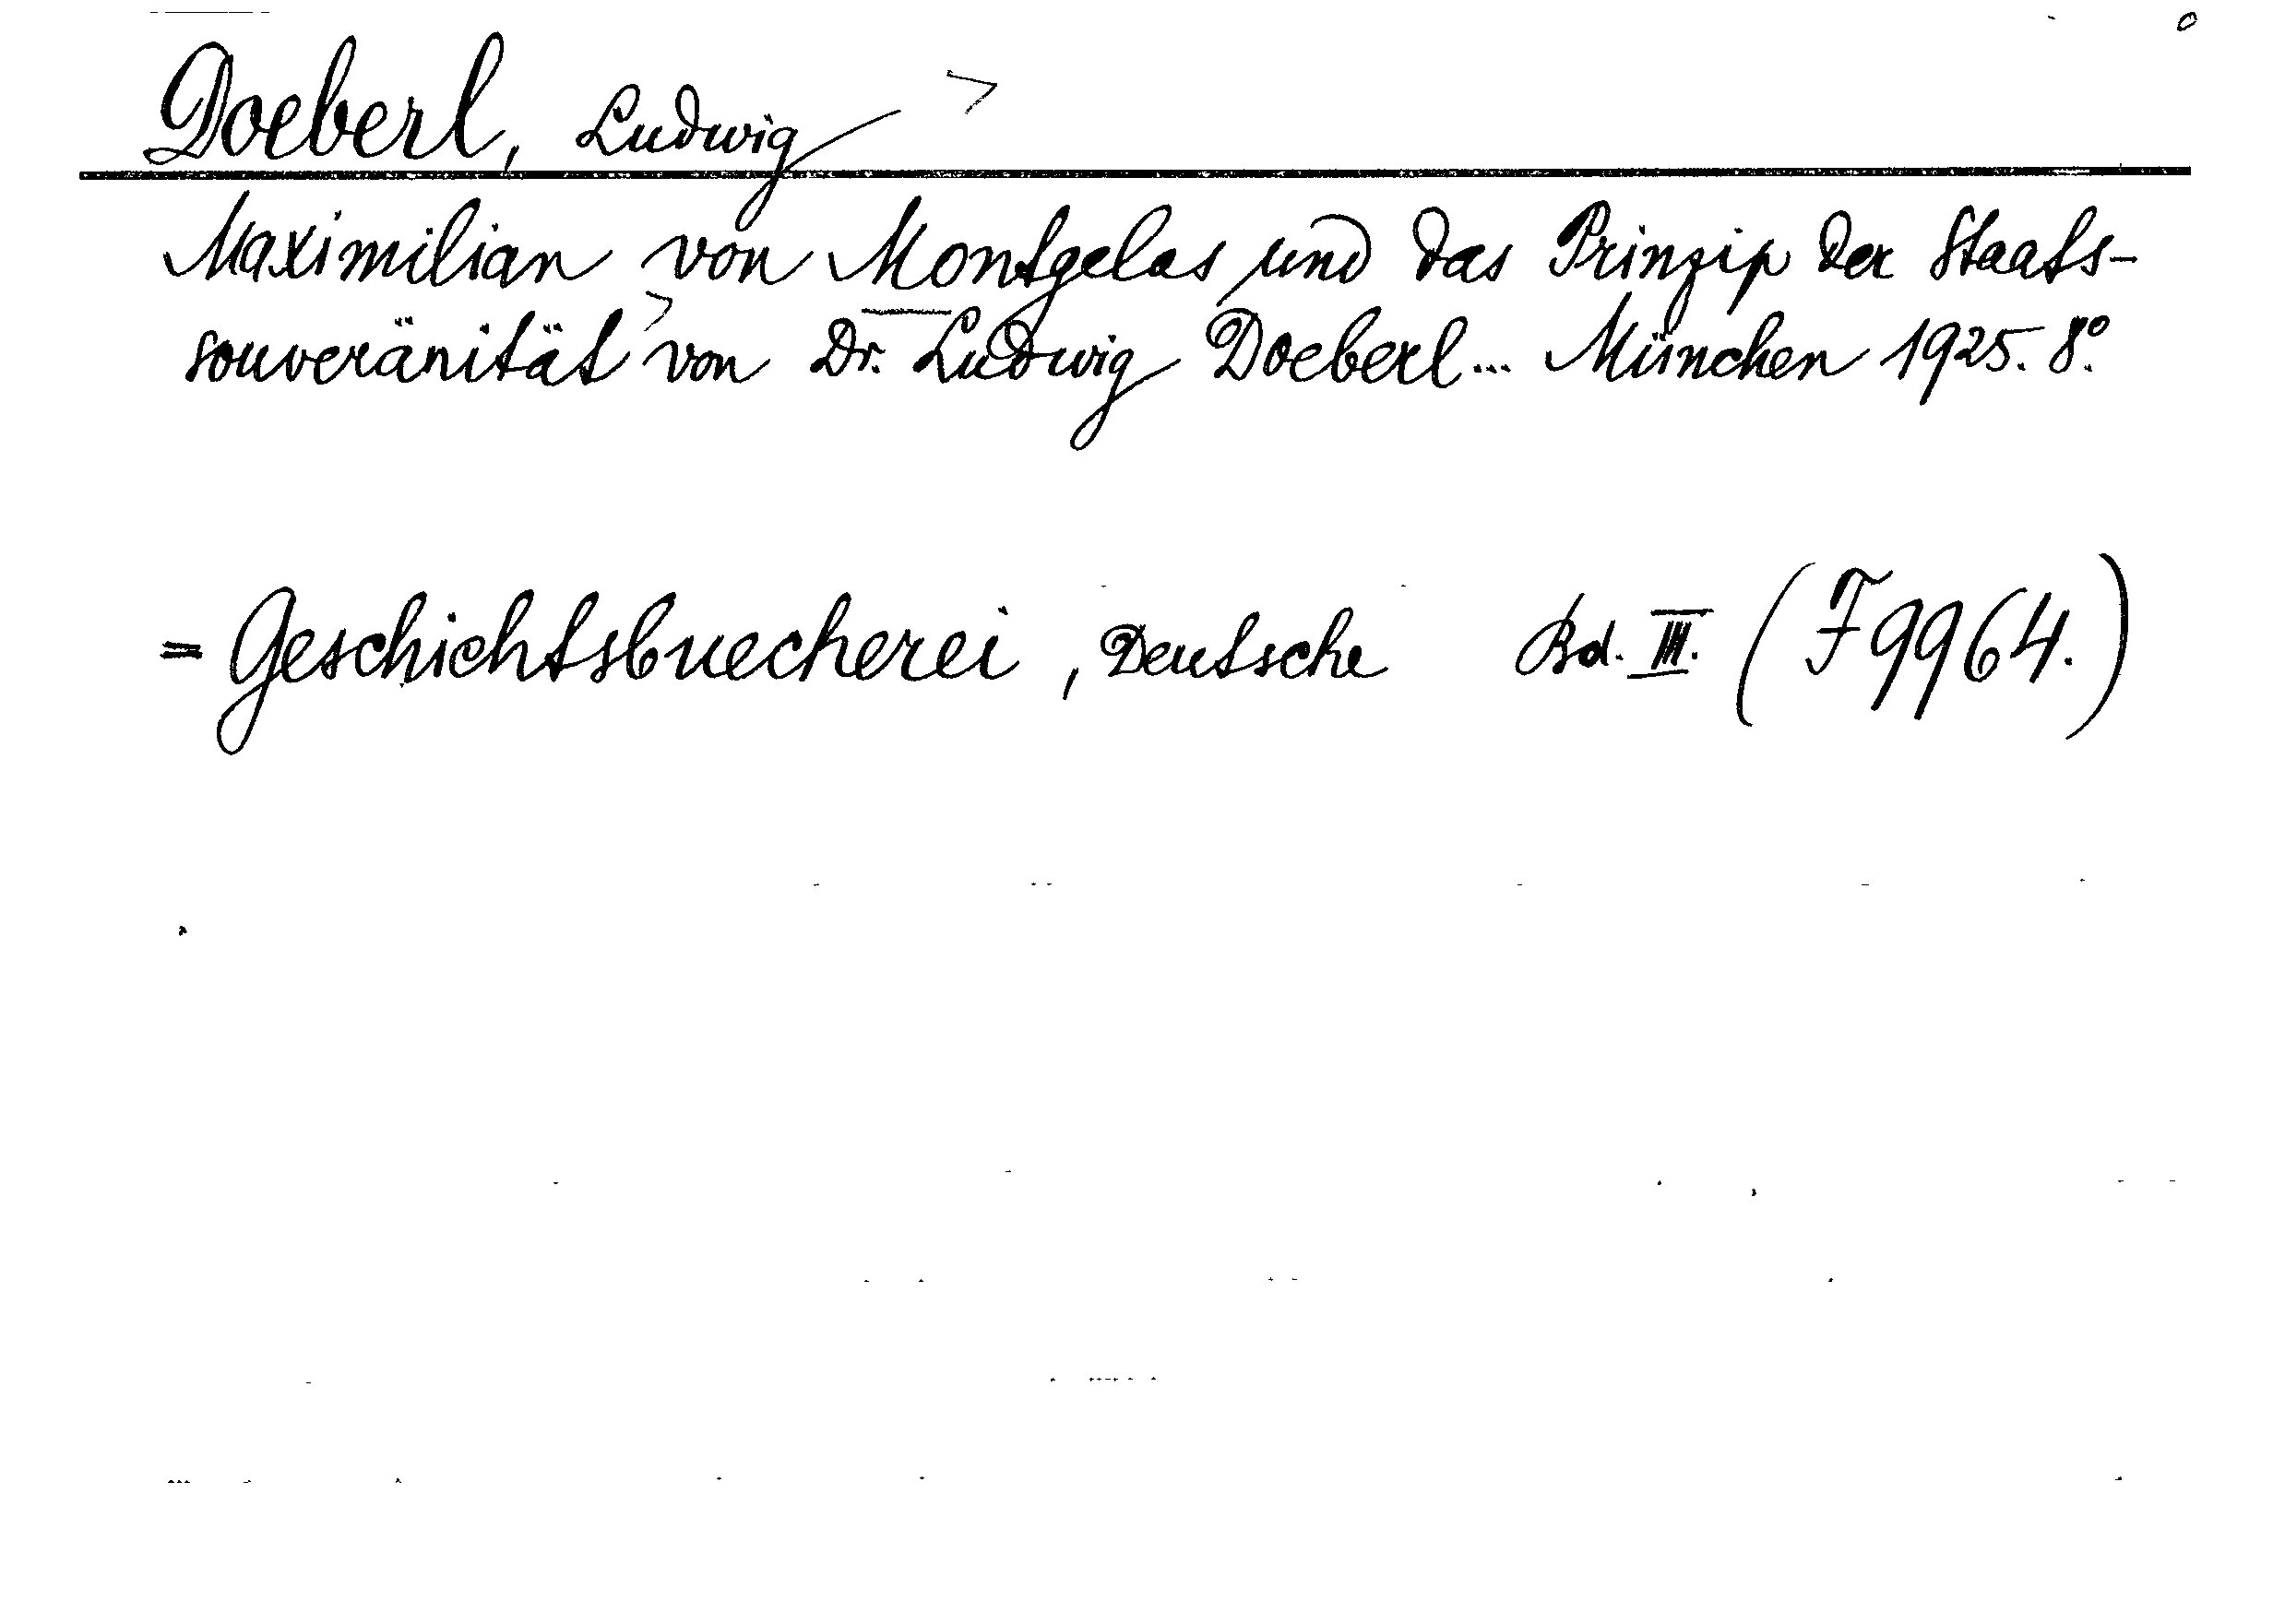 Doeberl, Ludwig
Maximilian von Montgelas und das Prinzip der Staats-
souveränität von Dr. Ludwig Doeberl... München 1925. 8°.
= Geschichtsbuecherei, Deutsche Bd. III. (F 9964.)